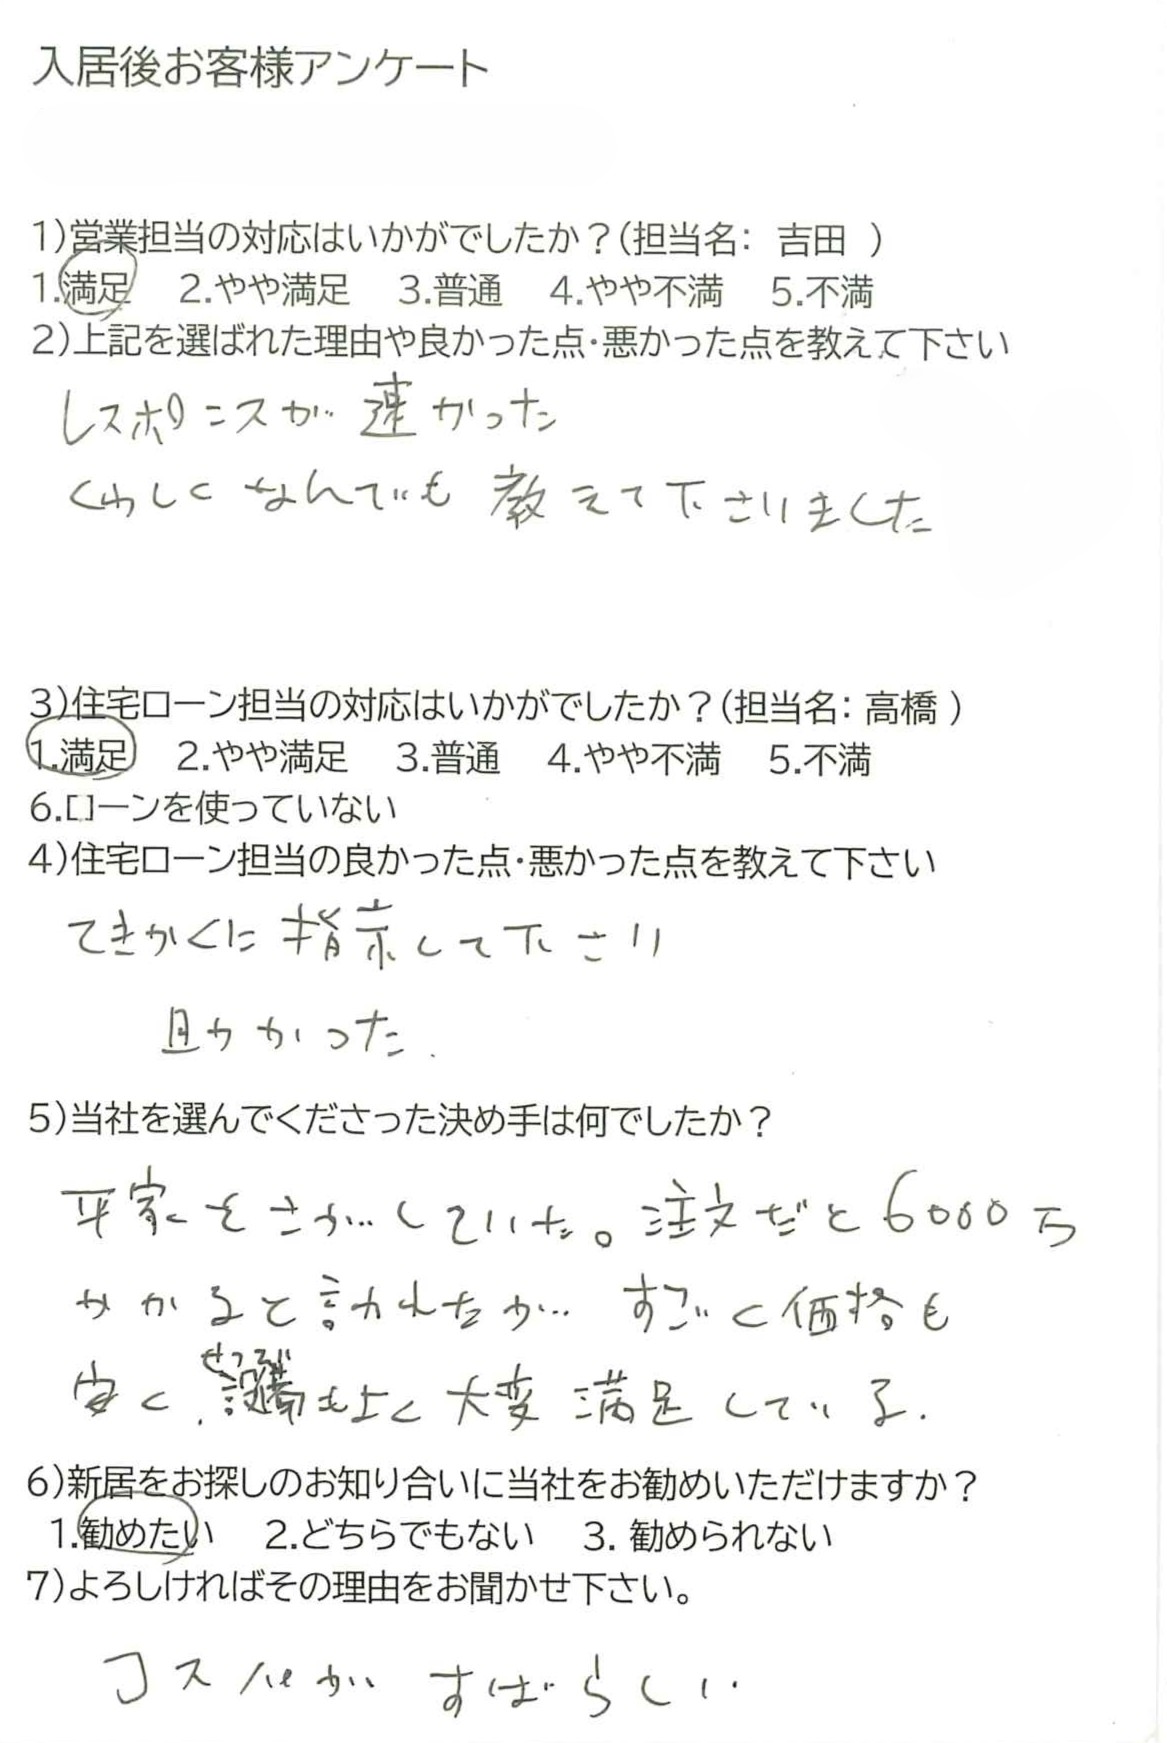 入居後お客様アンケート
1)営業担当の対応はいかがでしたか？(担当名： 吉田 )
1.満足 2.やや満足 3.普通 4.やや不満 5.不満
2)上記を選ばれた理由や良かった点・悪かった点を教えて下さい
レスポンスが速かった
くわしくなんでも教えて下さいました
3)住宅ローン担当の対応はいかがでしたか？(担当名： 高橋 )
1.満足 2.やや満足 3.普通 4.やや不満 5.不満
6.ローンを使っていない
4)住宅ローン担当の良かった点・悪かった点を教えて下さい
てきかくに指示して下さり
助かかった.
5)当社を選んでくださった決め手は何でしたか？
平家をさがしていた。注文だと6000万
かかると言われたが… すごく価格も
せつび
安く、設備もよく大変満足している.
6)新居をお探しのお知り合いに当社をお勧めいただけますか？
1.勧めたい 2.どちらでもない 3. 勧められない
7)よろしければその理由をお聞かせ下さい。
コスパがすばらしい.